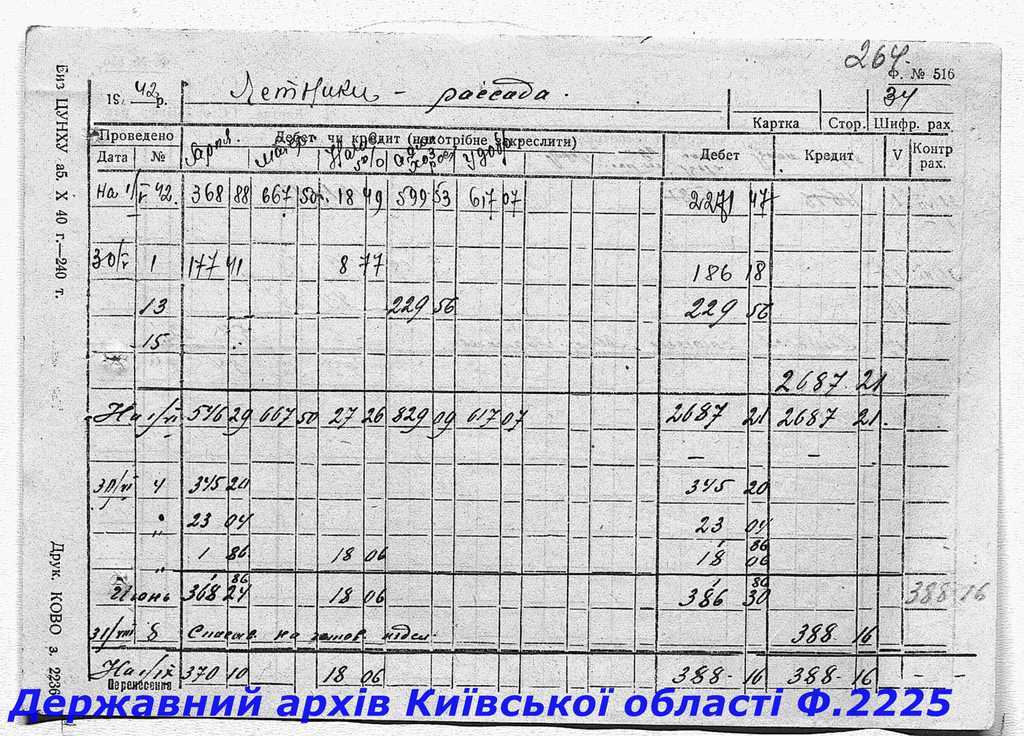 264.
Ф. № 516
19 42 р. Летники - рассада. 34
Картка Стор. Шифр. рах
Проведено Дебет чи кредит (непотрібне закреслити) Дебет Кредит V Контр рах.
Дата №
На 1/V 42. 368 88 667 50 18 49 599 53 617 07 2271 47
30/V 1 177 41 8 77 186 18
13 229 56 229 56
15
2687 21
На 1/VI 546 29 667 50 27 26 829 09 617 07 2687 21 2687 21.
— —
30/VI 4 345 20 345 20
" 23 04 23 04
" 1 86 18 06 1 86 18 06
Июнь 368 24 1 86 18 06 386 30 1 86 388 16
31/VIII 8 на готов. 388 16
На 1/IX 370 10 18 06 388 - 16 388 - 16 - -
Перенесення
Биз ЦУНХУ аб. X 40 г.—240 т.
Друк. КОВО з. 2236
Державний архів Київської області Ф.2225